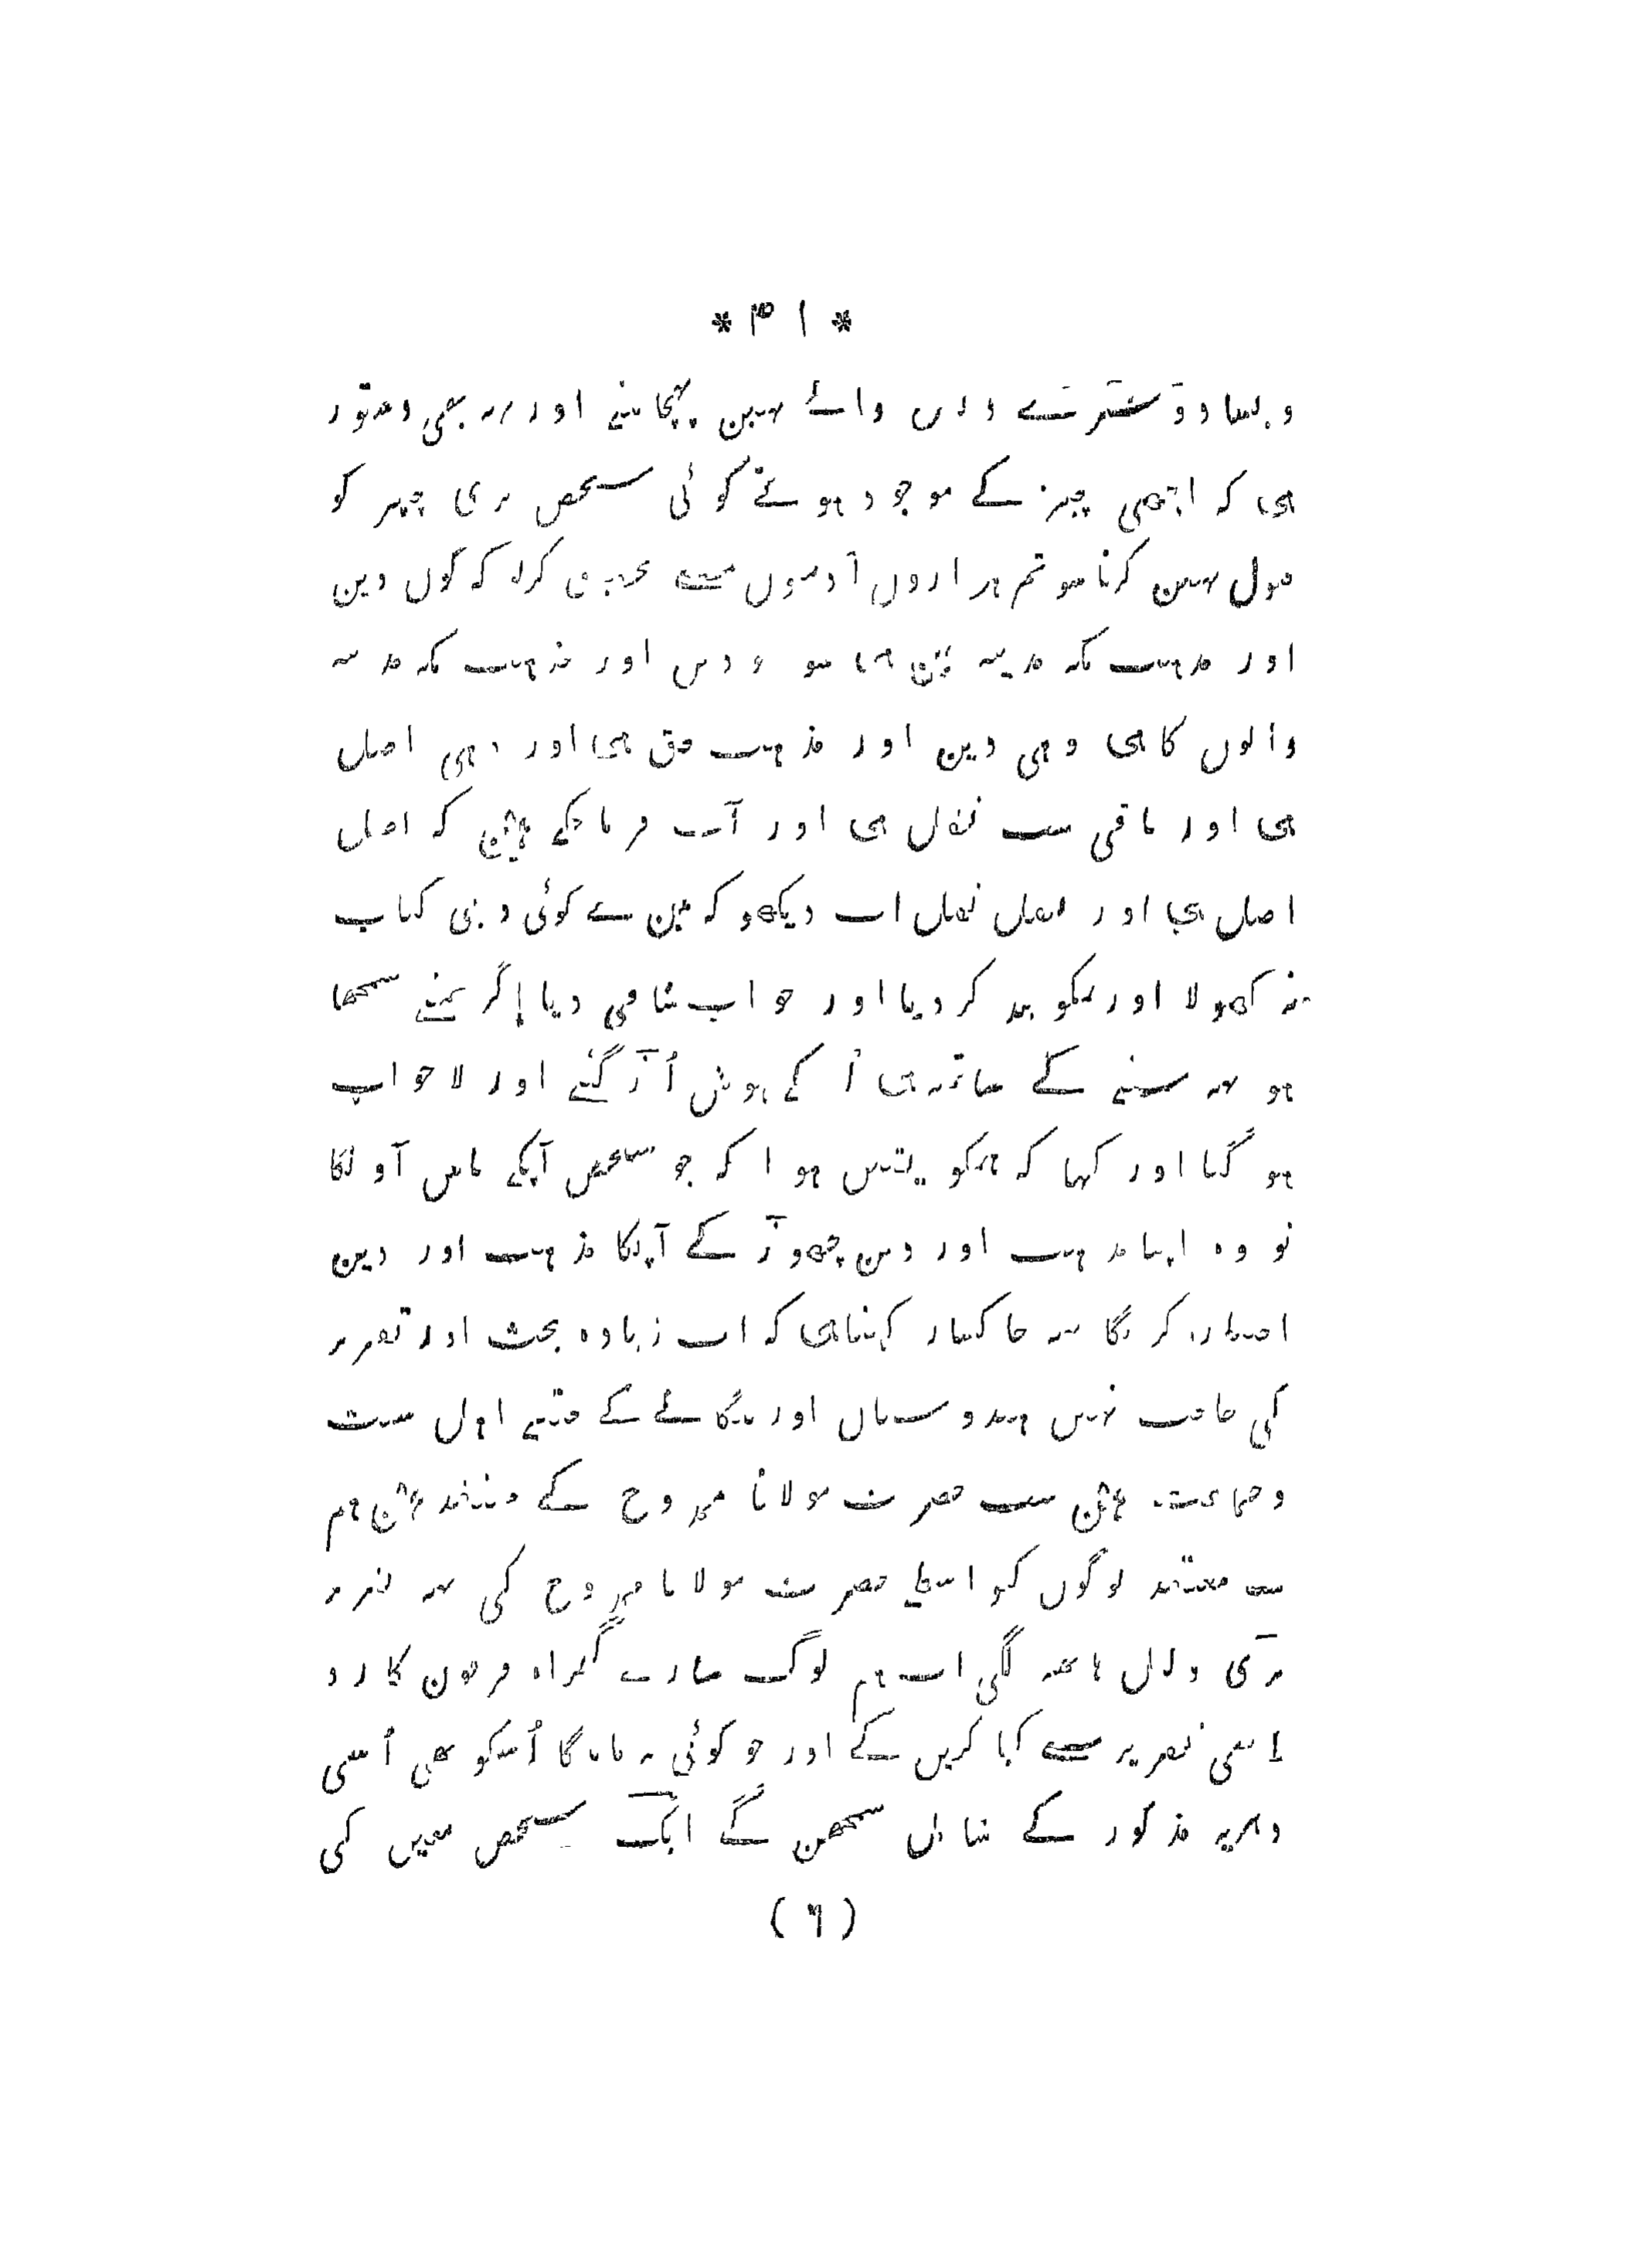 * ۴۱ *
ویسا دوسرے دیس والے نہین پہچانتے اور یہہ بھی دستور
ہی کہ اچھی چیز کے موجود ہوتے کوئی شخص بری چیز کو
قبول نہین کرتا سو تم ہزاروں آدمیوں سے تحقیق کرلو کہ کون دین
اور مذہب مکہ مدینہ مین ہی سو جو دین اور مذہب مکہ مدینہ
والوں کا ہی وہی دین اور مذہب حق ہی اور وہی اصل
ہی اور باقی سب نقل ہی اور آپ فرما چکے ہین کہ اصل
اصل ہی اور نقل نقل اب دیکھو کہ مین نے کوئی دینی کتاب
نہ کھولا اور تمکو بند کر دیا اور جواب شافی دیا اگر تمنے سمجھا
ہو یہہ سننے کے ساتھہ ہی اُسکے ہوش اُڑ گئے اور لا جواب
ہو گیا اور کہا کہ ہمکو یقین ہوا کہ جو شخص آپکے پاس آویگا
تو وہ اپنا مذہب اور دین چھوڑ کے آپکا مذہب اور دین
اختیار کریگا یہہ خاکسار کہتا ہی کہ اب زیادہ بحث اور تقریر
کی حاجت نہین ہندوستان اور بنگالے کے جتنے اہل سنت
و جماعت ہین سب حضرت مولانا ممدوح کے معتقد ہین ہم
سب معتقد لوگوں کو اسطے حضرت مولانا ممدوح کی یہہ تقریر
بڑی دلیل ہاتھہ لگی اب ہم لوگ سارے گمراہ فرقون کا رد
اسی تقریر سے کیا کریں گے اور جو کوئی نہ مانیگا اُسکو بھی اُسی
دہریہ مذکور کے شامل سمجھین گے ایک شخص معین کی
( ۶ )